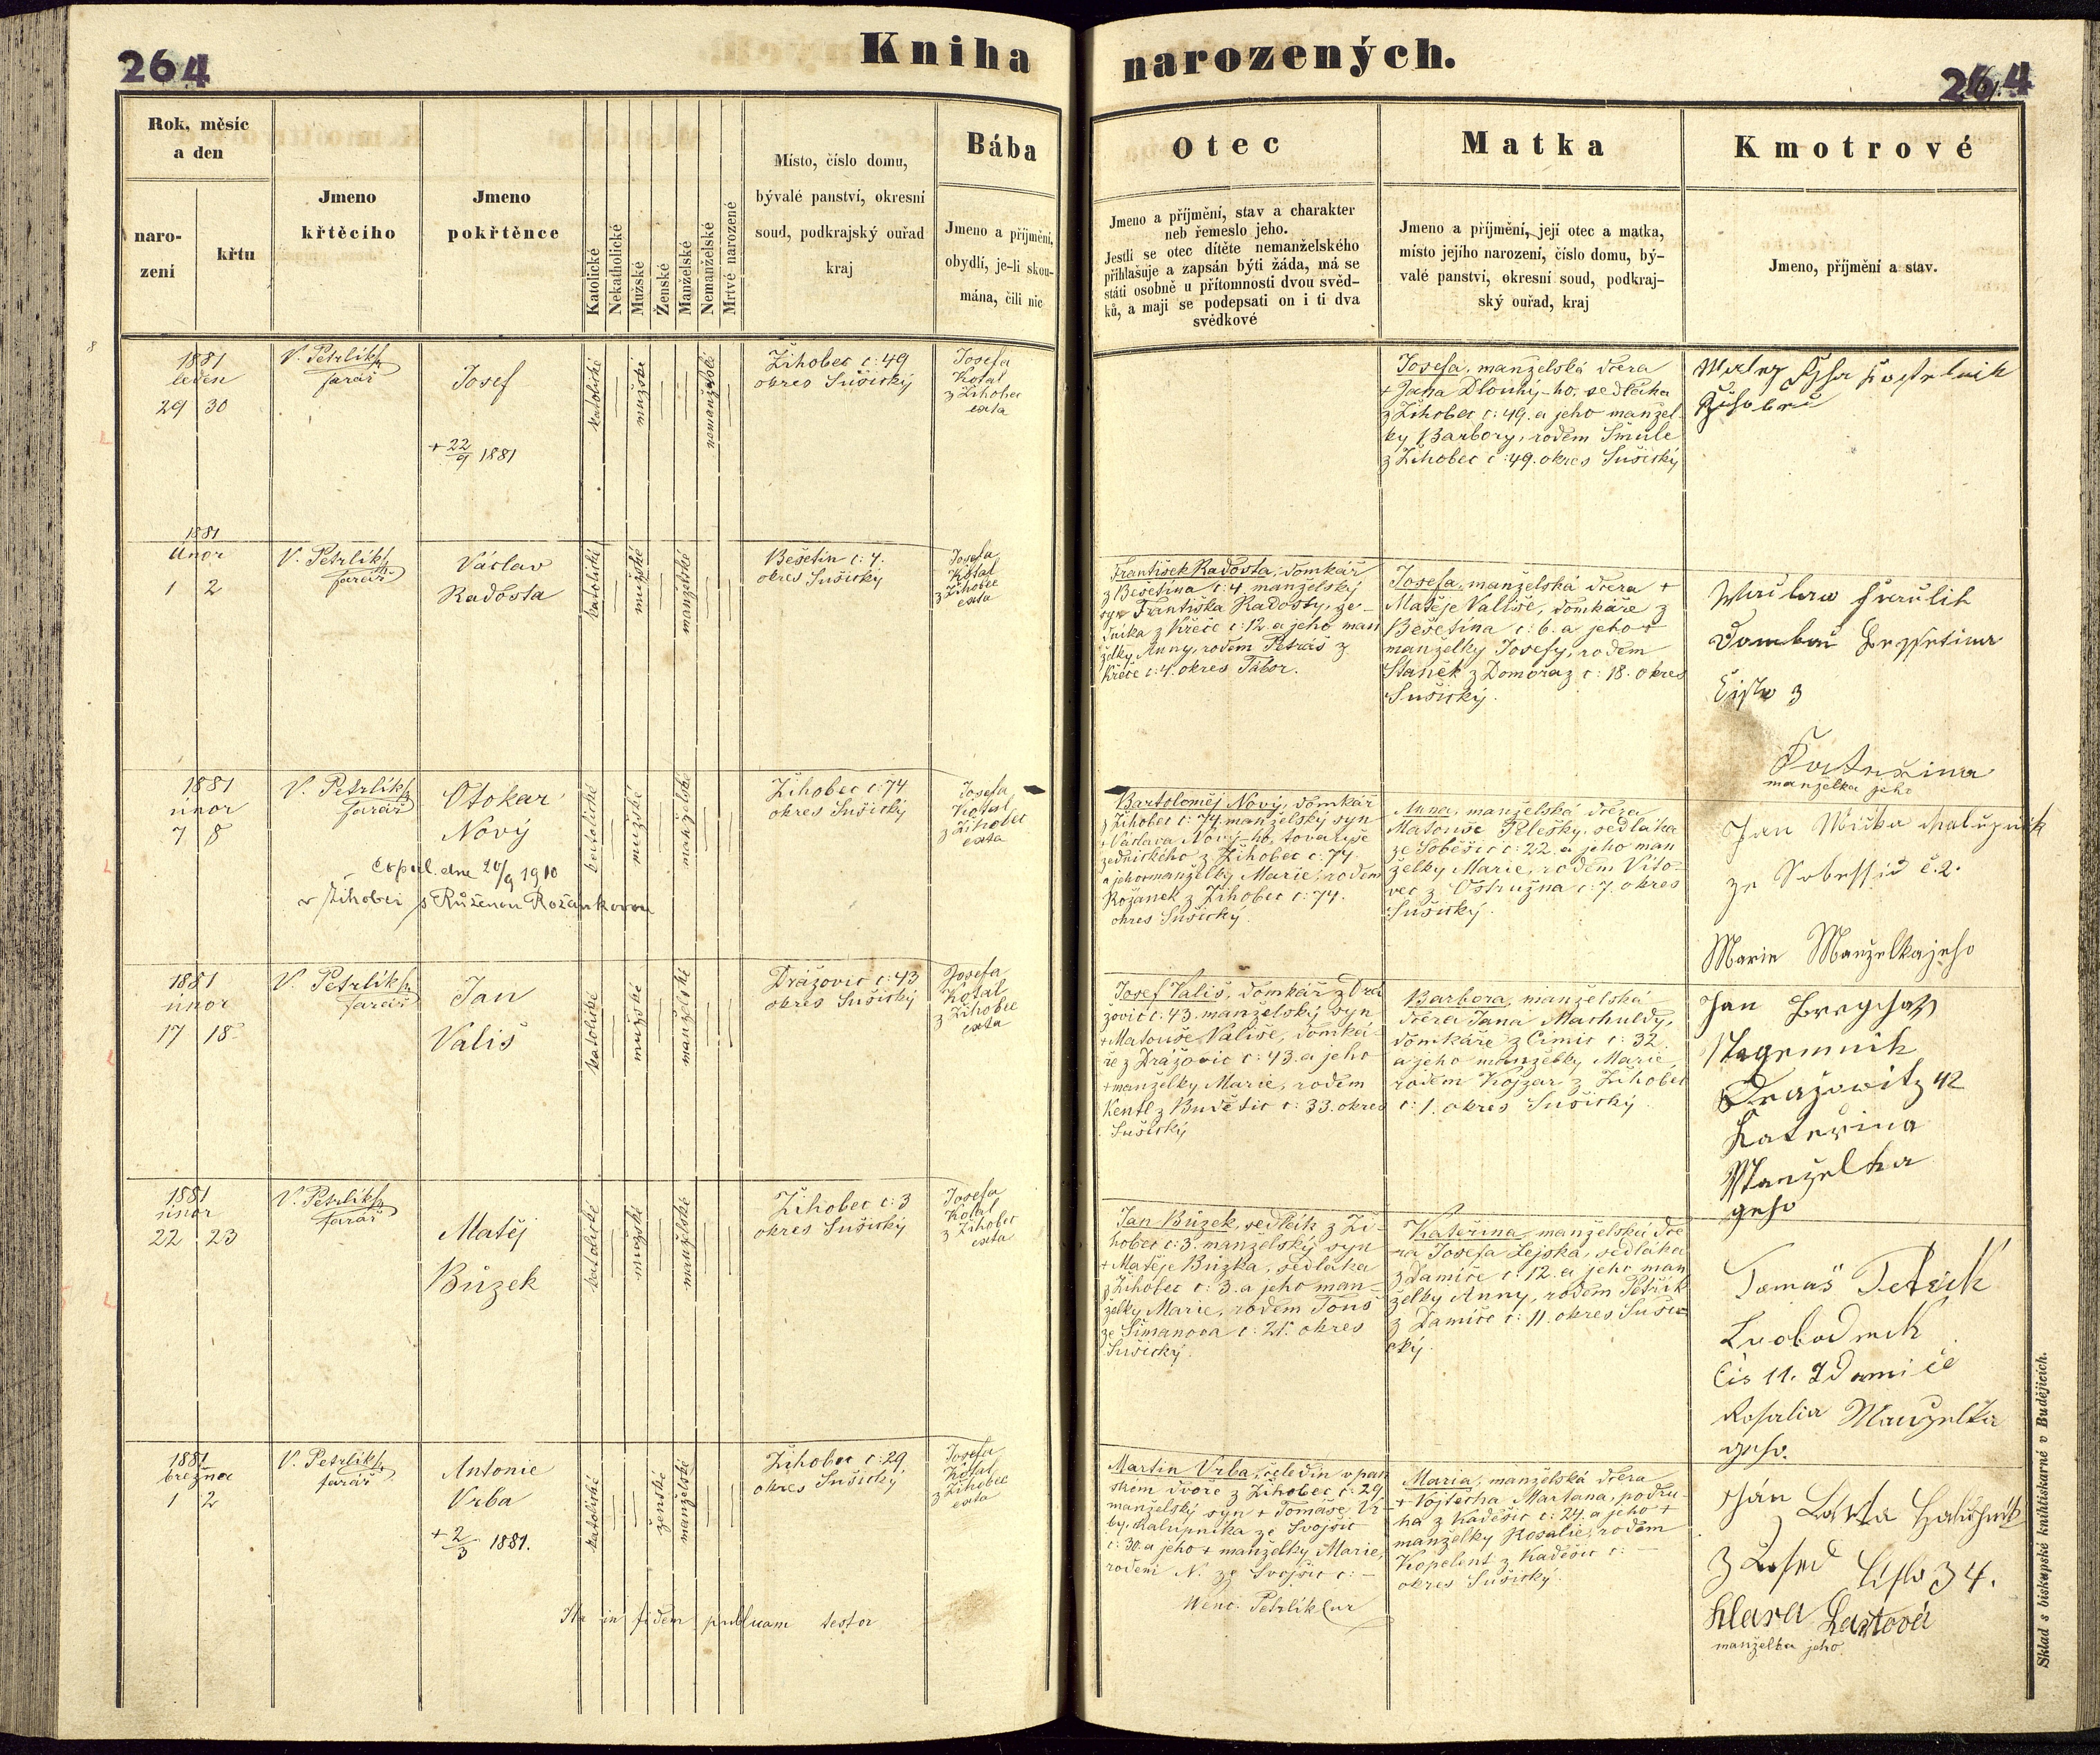 264
Kniha narozených.
264
Rok, měsíc
a den
naro-
zení
křtu
Jmeno
křtěcího
Jmeno
pokřtěnce
Katolické
Nekatholické
Mužské
Ženské
Manželské
Nemanželské
Mrtvé narozené
Místo, číslo domu,
bývalé panství, okresní
soud, podkrajský ouřad
kraj
Bába
Jmeno a příjmění,
obydlí, je-li skou-
mána, čili nic
Otec
Jmeno a příjmění, stav a charakter
neb řemeslo jeho.
Jestli se otec dítěte nemanželského
přihlašuje a zapsán býti žádá, má se
státi osobně u přítomnosti dvou svěd-
ků, a mají se podepsati on i ti dva
svědkové
Matka
Jmeno a příjmění, její otec a matka,
místo jejího narození, číslo domu, bý-
valé panství, okresní soud, podkraj-
ský ouřad, kraj
Kmotrové
Jmeno, příjmění a stav.
8
1881
leden
29 30
V. Petrlík
farář
Josef
+ 22/9 1881
katolické
mužské
nemanželské
Žihobec c: 49
okres Sušický
Josefa
Kotal
z Žihobec
exta
Josefa, manželská dcera
+ Jana Dlouhý-ho, sedláka
z Žihobec c: 49. a jeho manžel-
ky Barbory, rodem Smule
z Žihobec c: 49. okres Sušický
1881
Únor
1 2
V. Petrlík
farář
Václav
Radosta
katolické
mužské
manželské
Bešetin c: 4.
okres Sušický
Josefa
Kotal
z Žihobec
exta
František Radosta, domkář
z Bešetina c: 4 manželský
syn Františka Radosty, ze-
dníka z Křeče c: 12. a jeho man
želky Anny, rodem Petráš z
Křeče c: 4. okres Tábor.
Josefa, manželská dcera +
Matěje Vališe, domkáře z
Bešetína c: 6. a jeho +
manželky Josefy, rodem
Staněk z Domoraz c: 18. okres
Sušický.
Kateřina
manželka jeho
1881
únor
7 8
V. Petrlík
farář
Otokar
Nový
Copul. dne 20/9 1910
v Žihobci s Růženou Rožánkovou
katolické
mužské
manželské
Žihobec c: 74
okres Sušický
Josefa
Kotal
z Žihobec
exta
Bartoloměj Nový, domkář
z Žihobec c: 74. manželský syn
+ Václava Nový-ho, tovaryše
zednického z Žihobec c: 74.
a jeho manželky Marie, rodem
Rožánek z Žihobec c: 74.
okres Sušický.
Anna, manželská dcera
Matouše Plešky, sedláka
ze Soběšic c: 22. a jeho man
želky Marie, rodem Víto-
vec z Ostružna c: 7. okres
Sušický.
Marie Manželka jeho
1881
únor
17 18
V. Petrlík
farář
Jan
Vališ
katolické
mužské
manželské
Drážovic c: 43
okres Sušický
Josefa
Kotal
z Žihobec
exta
Josef Vališ, domkář z Drá
zovic c: 43. manželský syn
+ Matouše Vališe, domká-
ře z Drážovic c: 43. a jeho
+ manželky Marie, rodem
Kentl z Budětic c: 33. okres
Sušický
Barbora, manželská
dcera Jana Machuldy,
domkáře z Čimic c: 32.
a jeho manželky Marie,
rodem Kojzar z Žihobec
c: 1. okres Sušický.
Kateřina
Manželka
geho
1881
únor
22 23
V. Petrlík
farář
Matěj
Bůzek
katolické
mužské
manželské
Žihobec c: 3
okres Sušický
Josefa
Kotal
z Žihobec
exta
Jan Bůzek, sedlák z Ži-
hobec c: 3. manželský syn
+ Matěje Bůzka, sedláka
z Žihobec c: 3. a jeho man-
želky Marie, rodem Touš
ze Šimanova c: 21. okres
Sušický.
Kateřina, manželská dce-
ra Josefa Lejska, sedláka
z Damíče c: 12. a jeho man
želky Anny, rodem Petřík
z Damíče c: 11. okres Suši-
cký.
Tomáš Petřik
Čis 11. Z Damiče
Rosalia Manželka
geho.
1881
března
1 2
V. Petrlík
farář
Antonie
Vrba
+ 2/3 1881.
katolické
ženské
manželské
Žihobec c: 29
okres Sušický
Josefa
Kotal
z Žihobec
exta
Martin Vrba, čeledín v pan
ském dvoře z Žihobec c: 29.
manželský syn + Tomáše Vr-
by, kalupníka ze Svojšic
c: 30. a jeho + manželky Marie,
rodem N. ze Svojšic c: —
Maria, manželská dcera
+ Vojtěcha Martana, podru-
ha z Kadešic c: 24. a jeho +
manželky Rosalie, rodem
Kopelent z Kadešic c: —
okres Sušický.
Číslo 34.
Klara Lastová
manželka jeho
Ita in fidem publicam testor
Wenc. Petrlík Cur
Sklad s biskupské knihtiskárně v Budějicích.